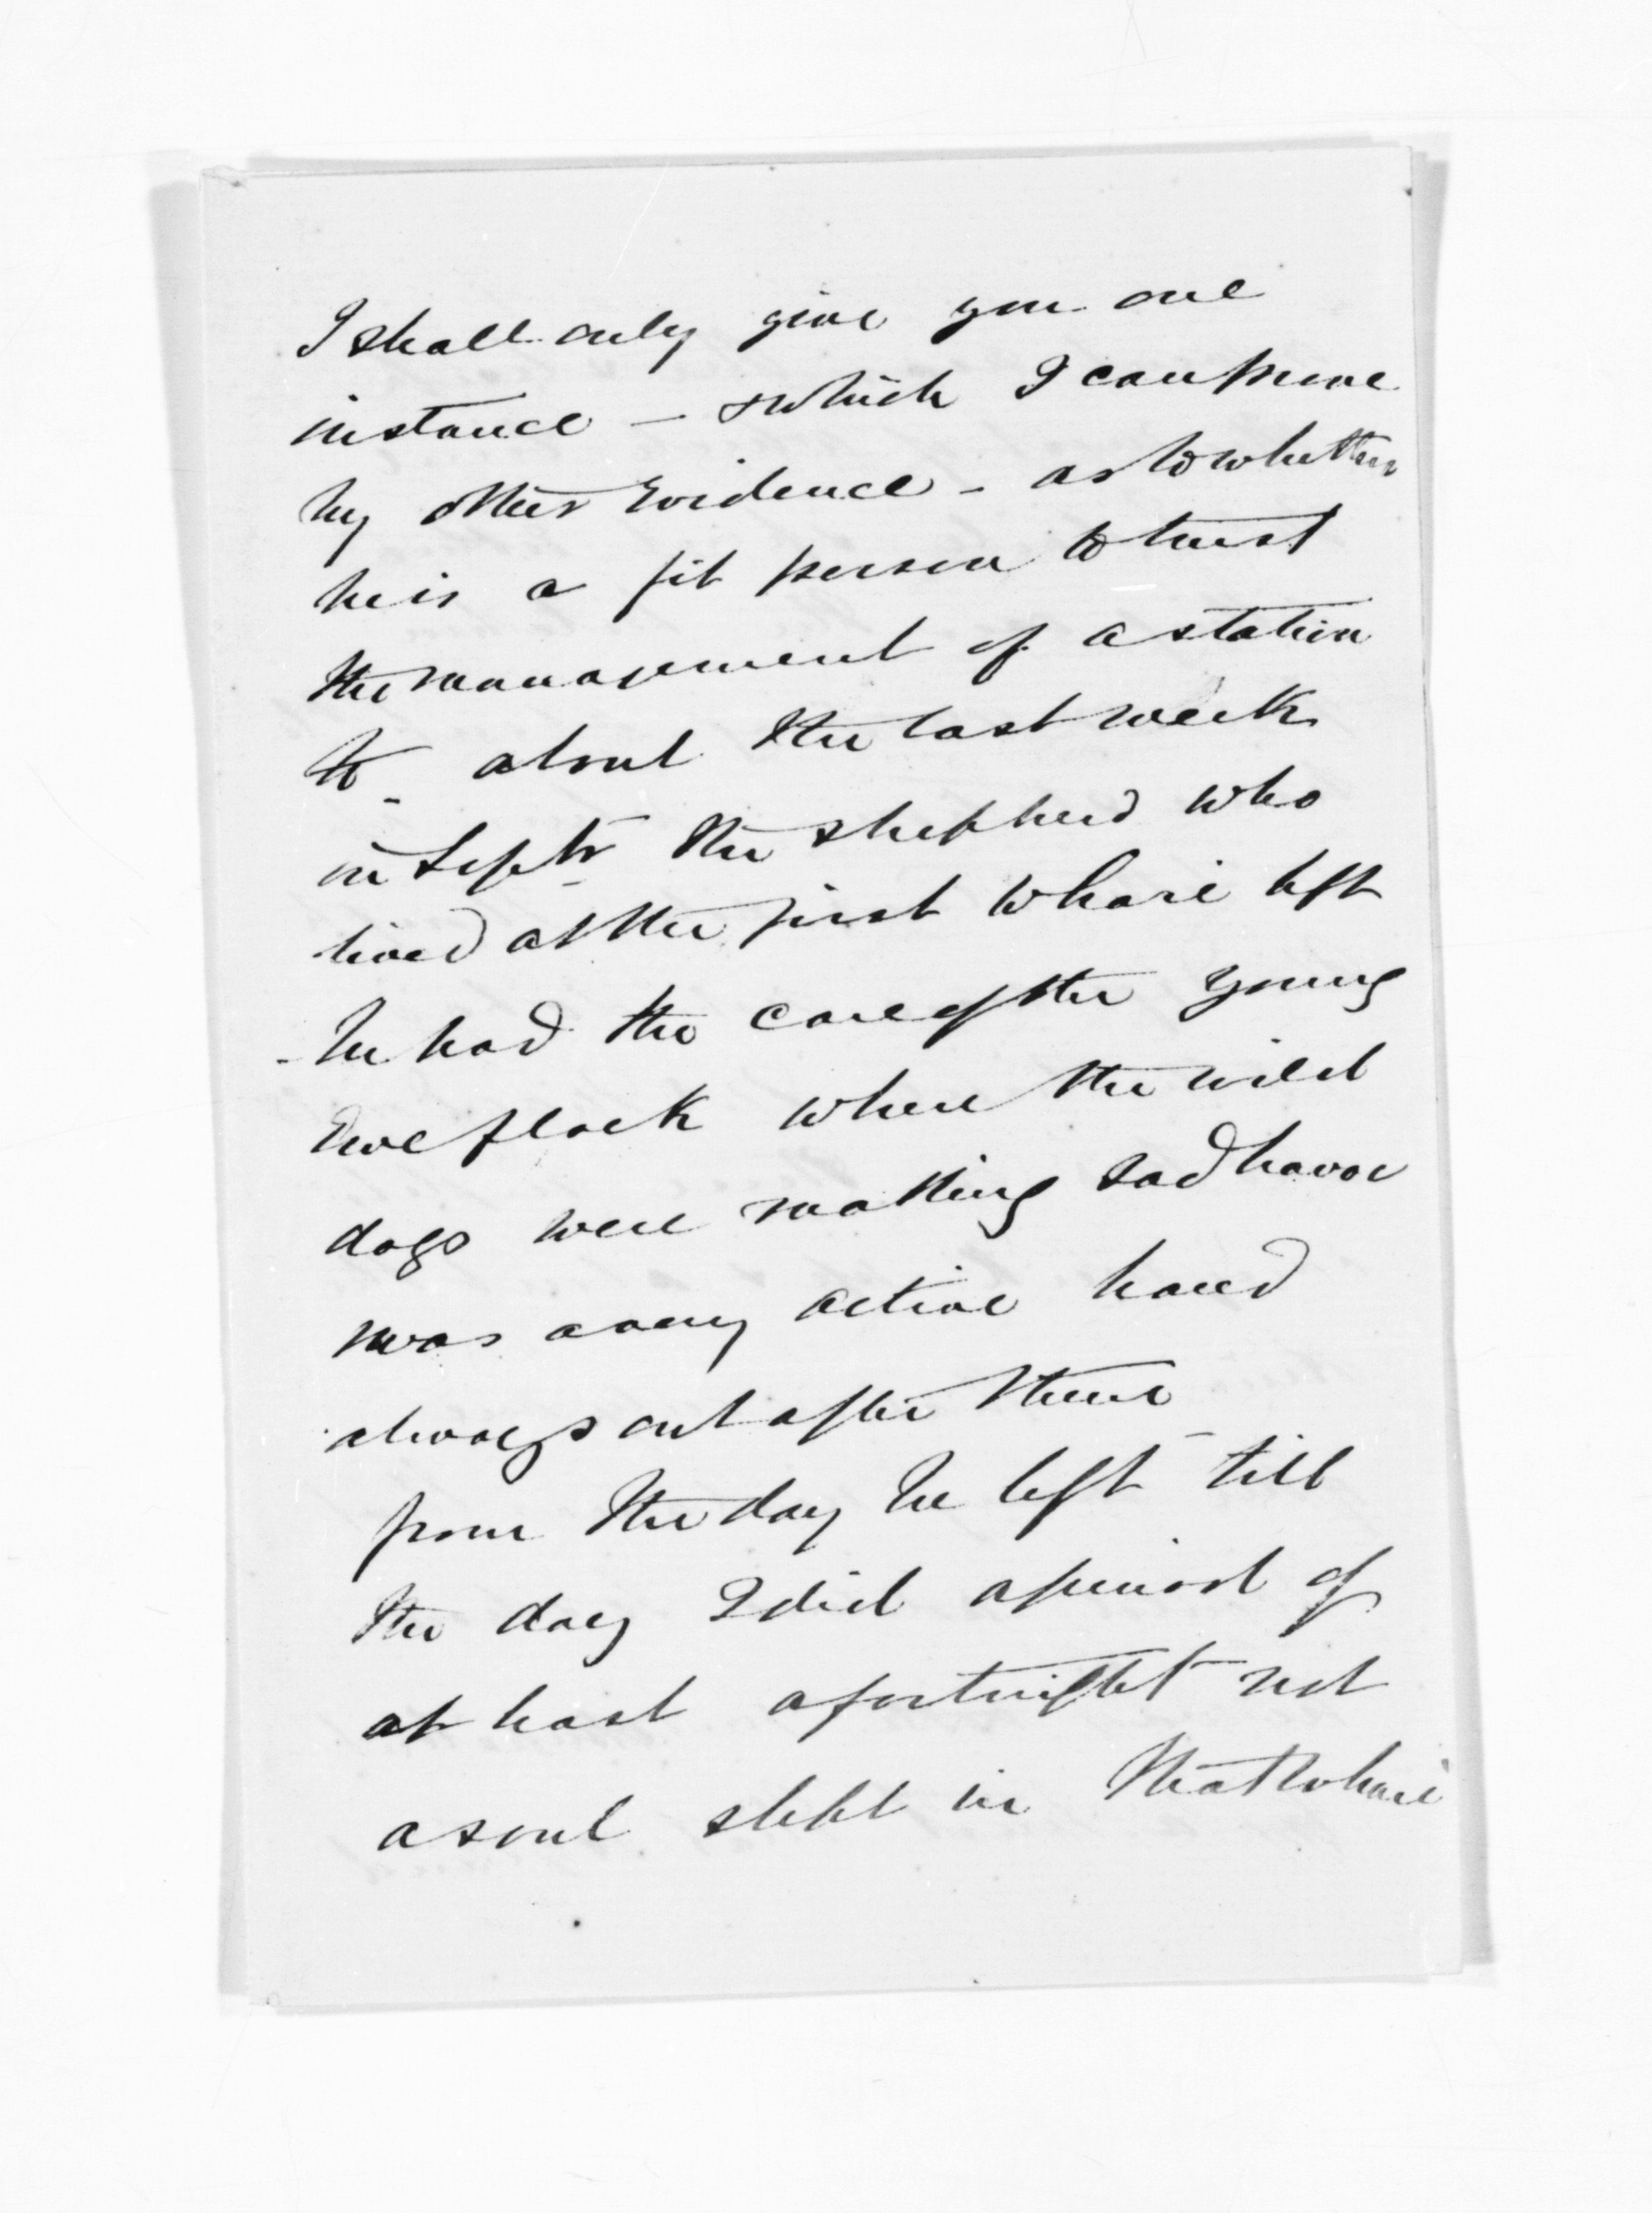 I shall only give you one
instance - & which I can prove
by other Evidence - as to whether
he is a fit person to trust
the management of a station
to - about the last week
in Septr the shepherd who
lived at the first Wharie left
- he had the care of the young
Ewe flock where the wild
dogs were making sad havoc
& was a very active hand
always out after them -
from the day he left till
the day I did a period of
at least a fortnight not
a soul slept in that Wharie